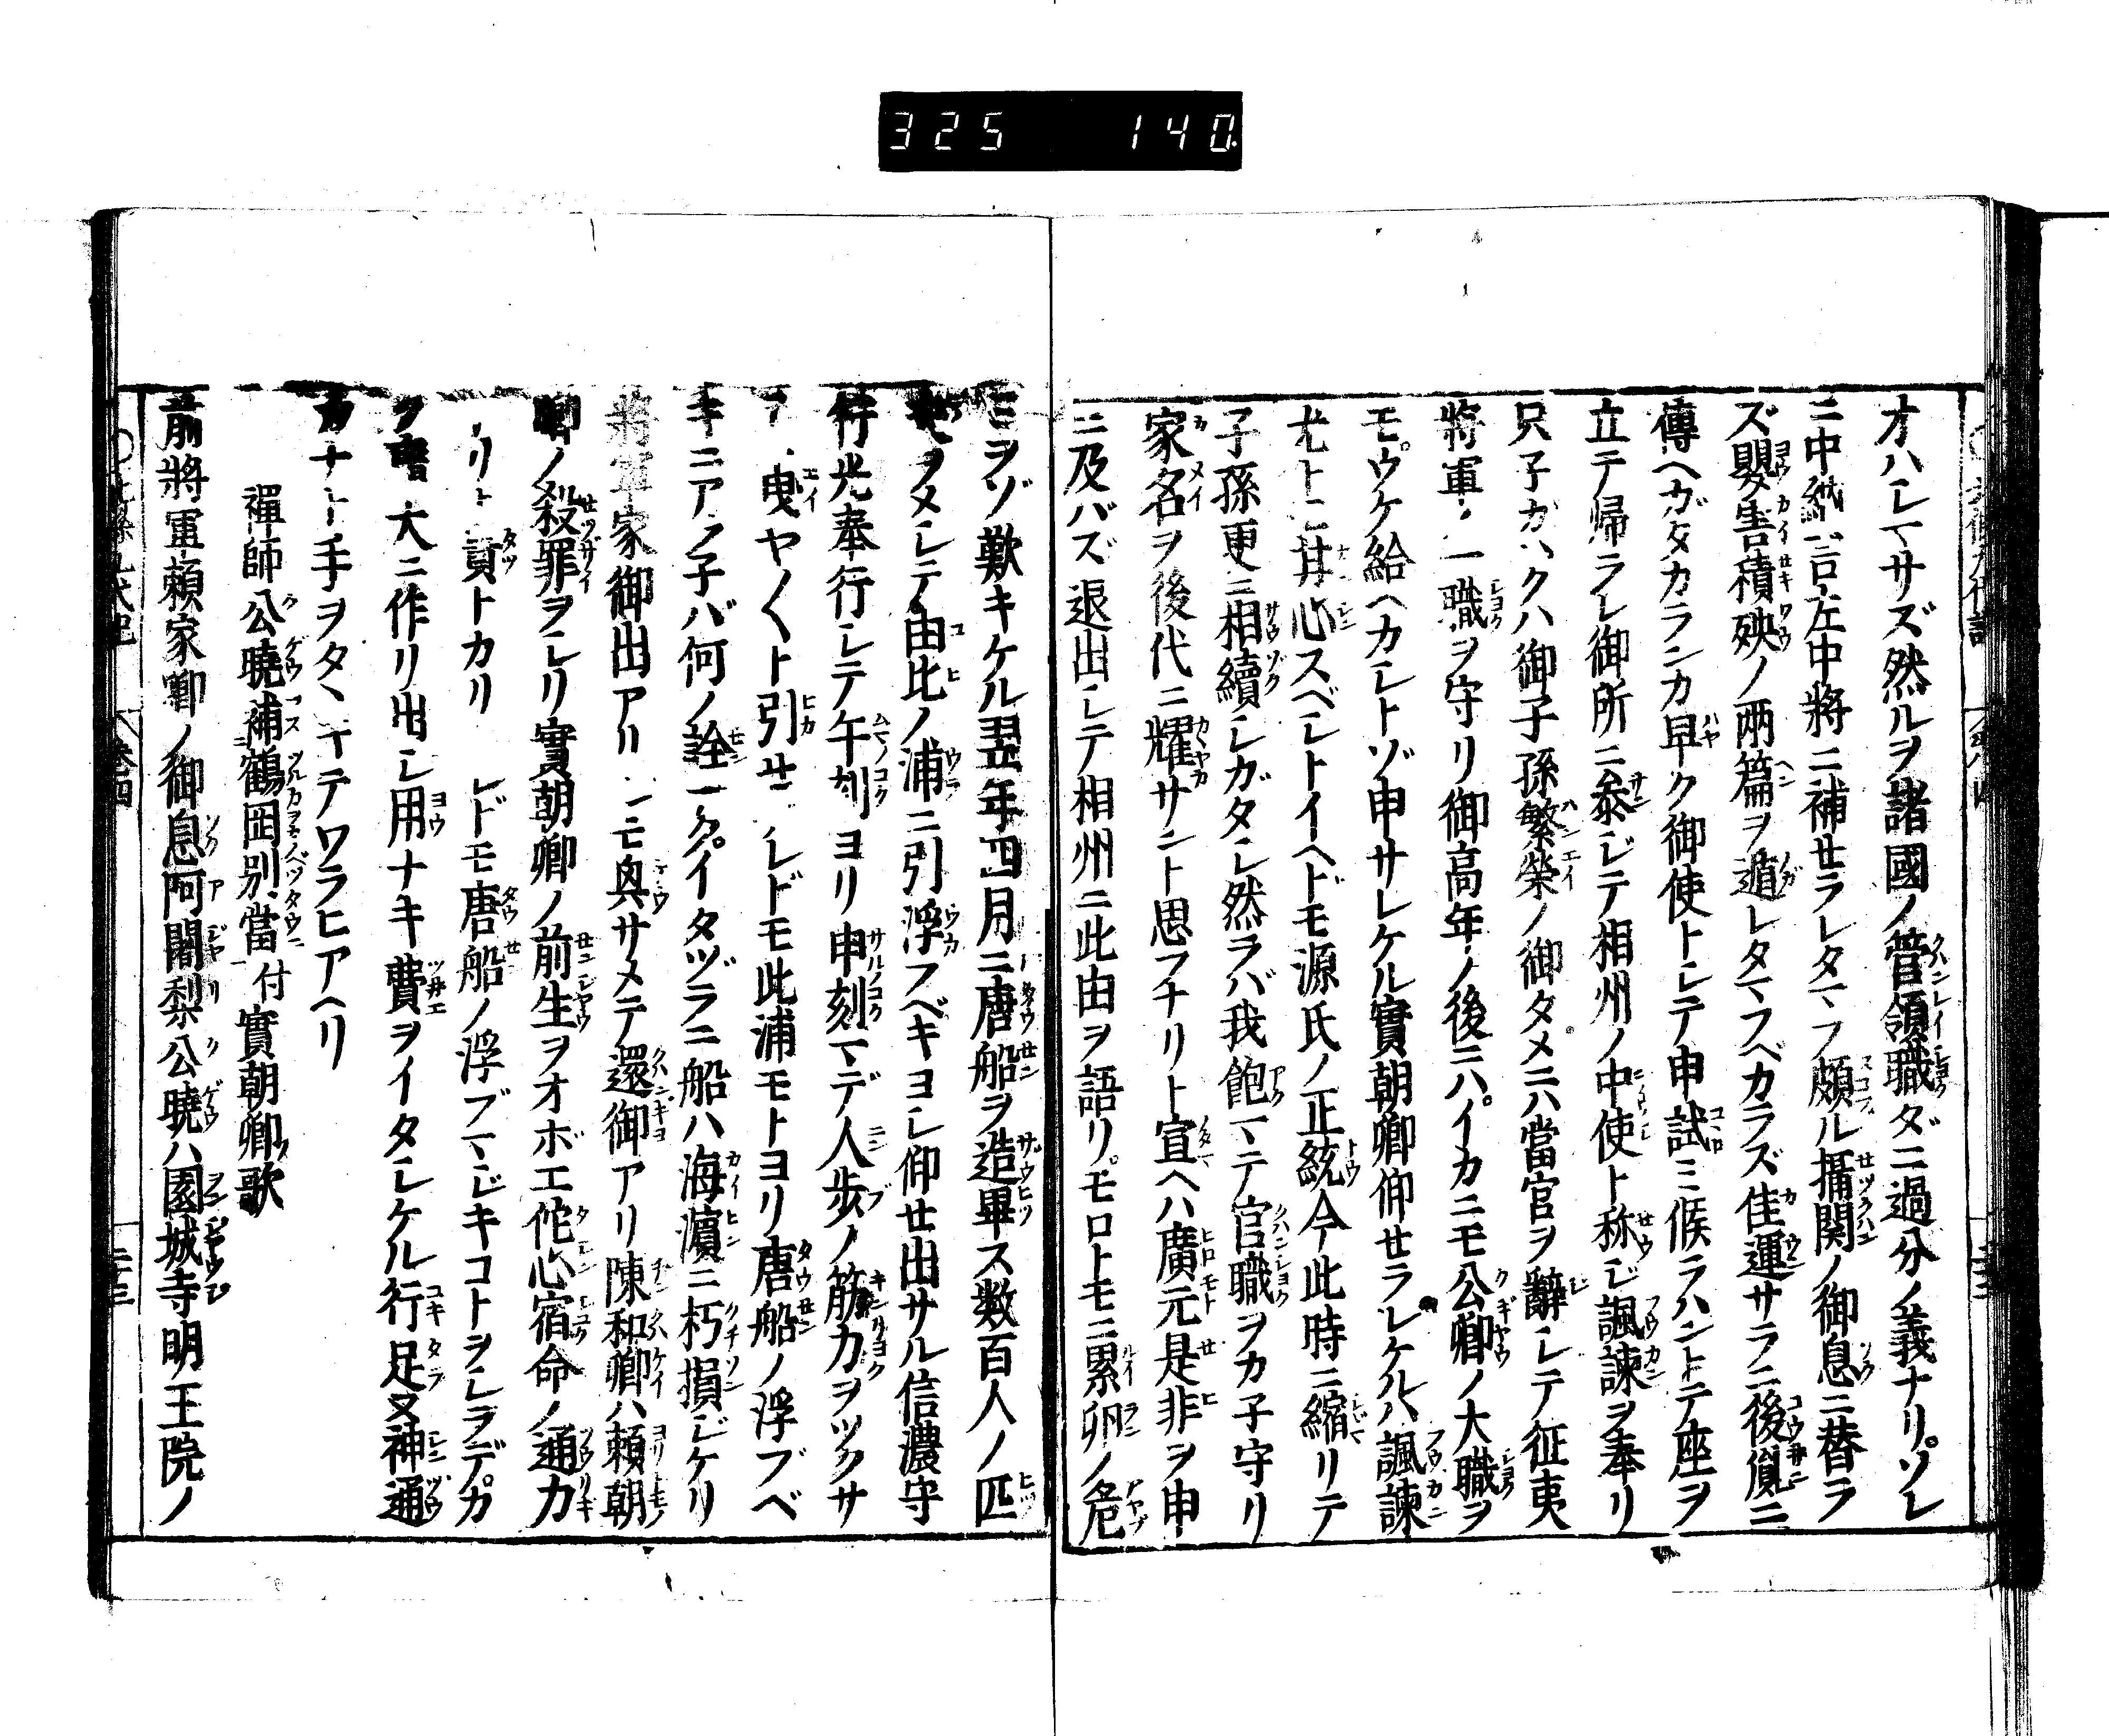 325 140
オハシマサズ然ルヲ諸國ノ管領職ダニ過分ノ義ナリソレ
ニ中納言左中將ニ補せラレタマフ頗ル攝関ノ御息ニ替ラ
ズ嬰害積殃ノ兩篇ヲ遁レタマフベカラズ佳運サラニ後胤ニ
傳ヘガタカランカ早ク御使トシテ申試ミ候ラハントテ座ヲ
立テ帰ラレ御所ニ参ジテ相州ノ中使ト称ジ諷諫ヲ奉リ
只子カハクハ御子孫繁榮ノ御タメニハ當官ヲ辭シテ征夷
將軍ノ一職ヲ守リ御高年ノ後ニハイカニモ公卿ノ大職ヲ
モウケ給ヘカシトゾ申サレケル實朝卿仰せラレケルハ諷諫
尤ト甘心スベシトイヘドモ源氏ノ正統今此時ニ縮リテ
子孫更ニ相續シガタシ然ラバ我飽マテ官職ヲカ子守リ
家名ヲ後代ニ耀サント思フナリト宣ヘハ廣元是非ヲ申
ニ及バズ退出シテ相州ニ此由ヲ語リモロトモニ累卵ノ危
ミヲゾ歎キケル翌年四月ニ唐船ヲ造畢ス数百人ノ匹
ヲメシテ由比ノ浦ニ引浮フベキヨシ仰せ出サル信濃守
行光奉行シテ午刻ヨリ申刻マデ人歩ノ筋力ヲツクサ
曳ヤ〱ト引せ レドモ此浦モトヨリ唐船ノ浮ブベ
キニアラ子バ何ノ詮 クイタヅラニ船ハ海濵ニ朽損ジケリ
將軍家御出アリ モ興サメテ還御アリ陳和卿ハ頼朝
卿ノ殺罪ヲシリ實朝卿ノ前生ヲオボエ佗心宿命ノ通力
リト 貢トカリ レドモ唐船ノ浮ブマジキコトヲシラデカ
ク 大ニ作リ出シ用ナキ費ヲイタシケル行足又神通
カナト手ヲタヽキテワラヒアヘリ
禪師公曉補鶴岡別當付實朝卿歌
前將軍頼家卿ノ御息阿闍梨公曉ハ園城寺明王院ノ